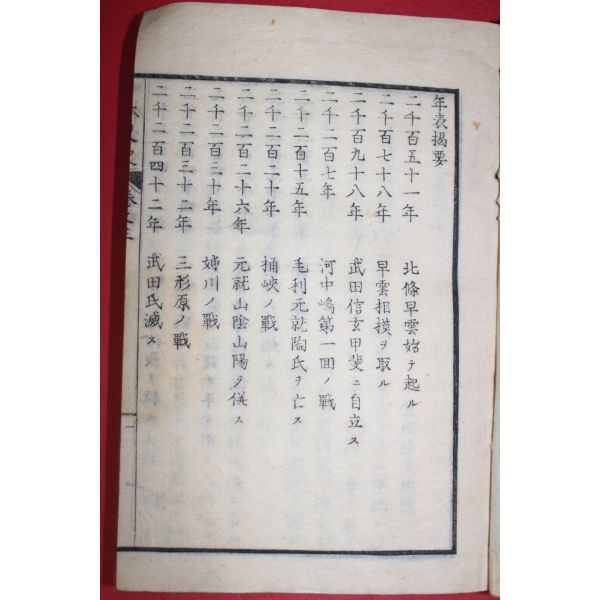 年表揭要
二千百五十一年 北條早雲始テ起ル
二千百七十八年 早雲相摸ヲ取ル
二千百九十八年 武田信玄甲斐ニ自立ス
二千二百七年 河中嶋第一回ノ戰
二千二百十五年 毛利元就陶氏ヲ亡ス
二千二百二十年 桶峽ノ戰
二千二百二十六年 元就山陰山陽ヲ併ス
二千二百三十年 姉川ノ戰
二千二百三十二年 三形原ノ戰
二千二百四十二年 武田氏滅ス